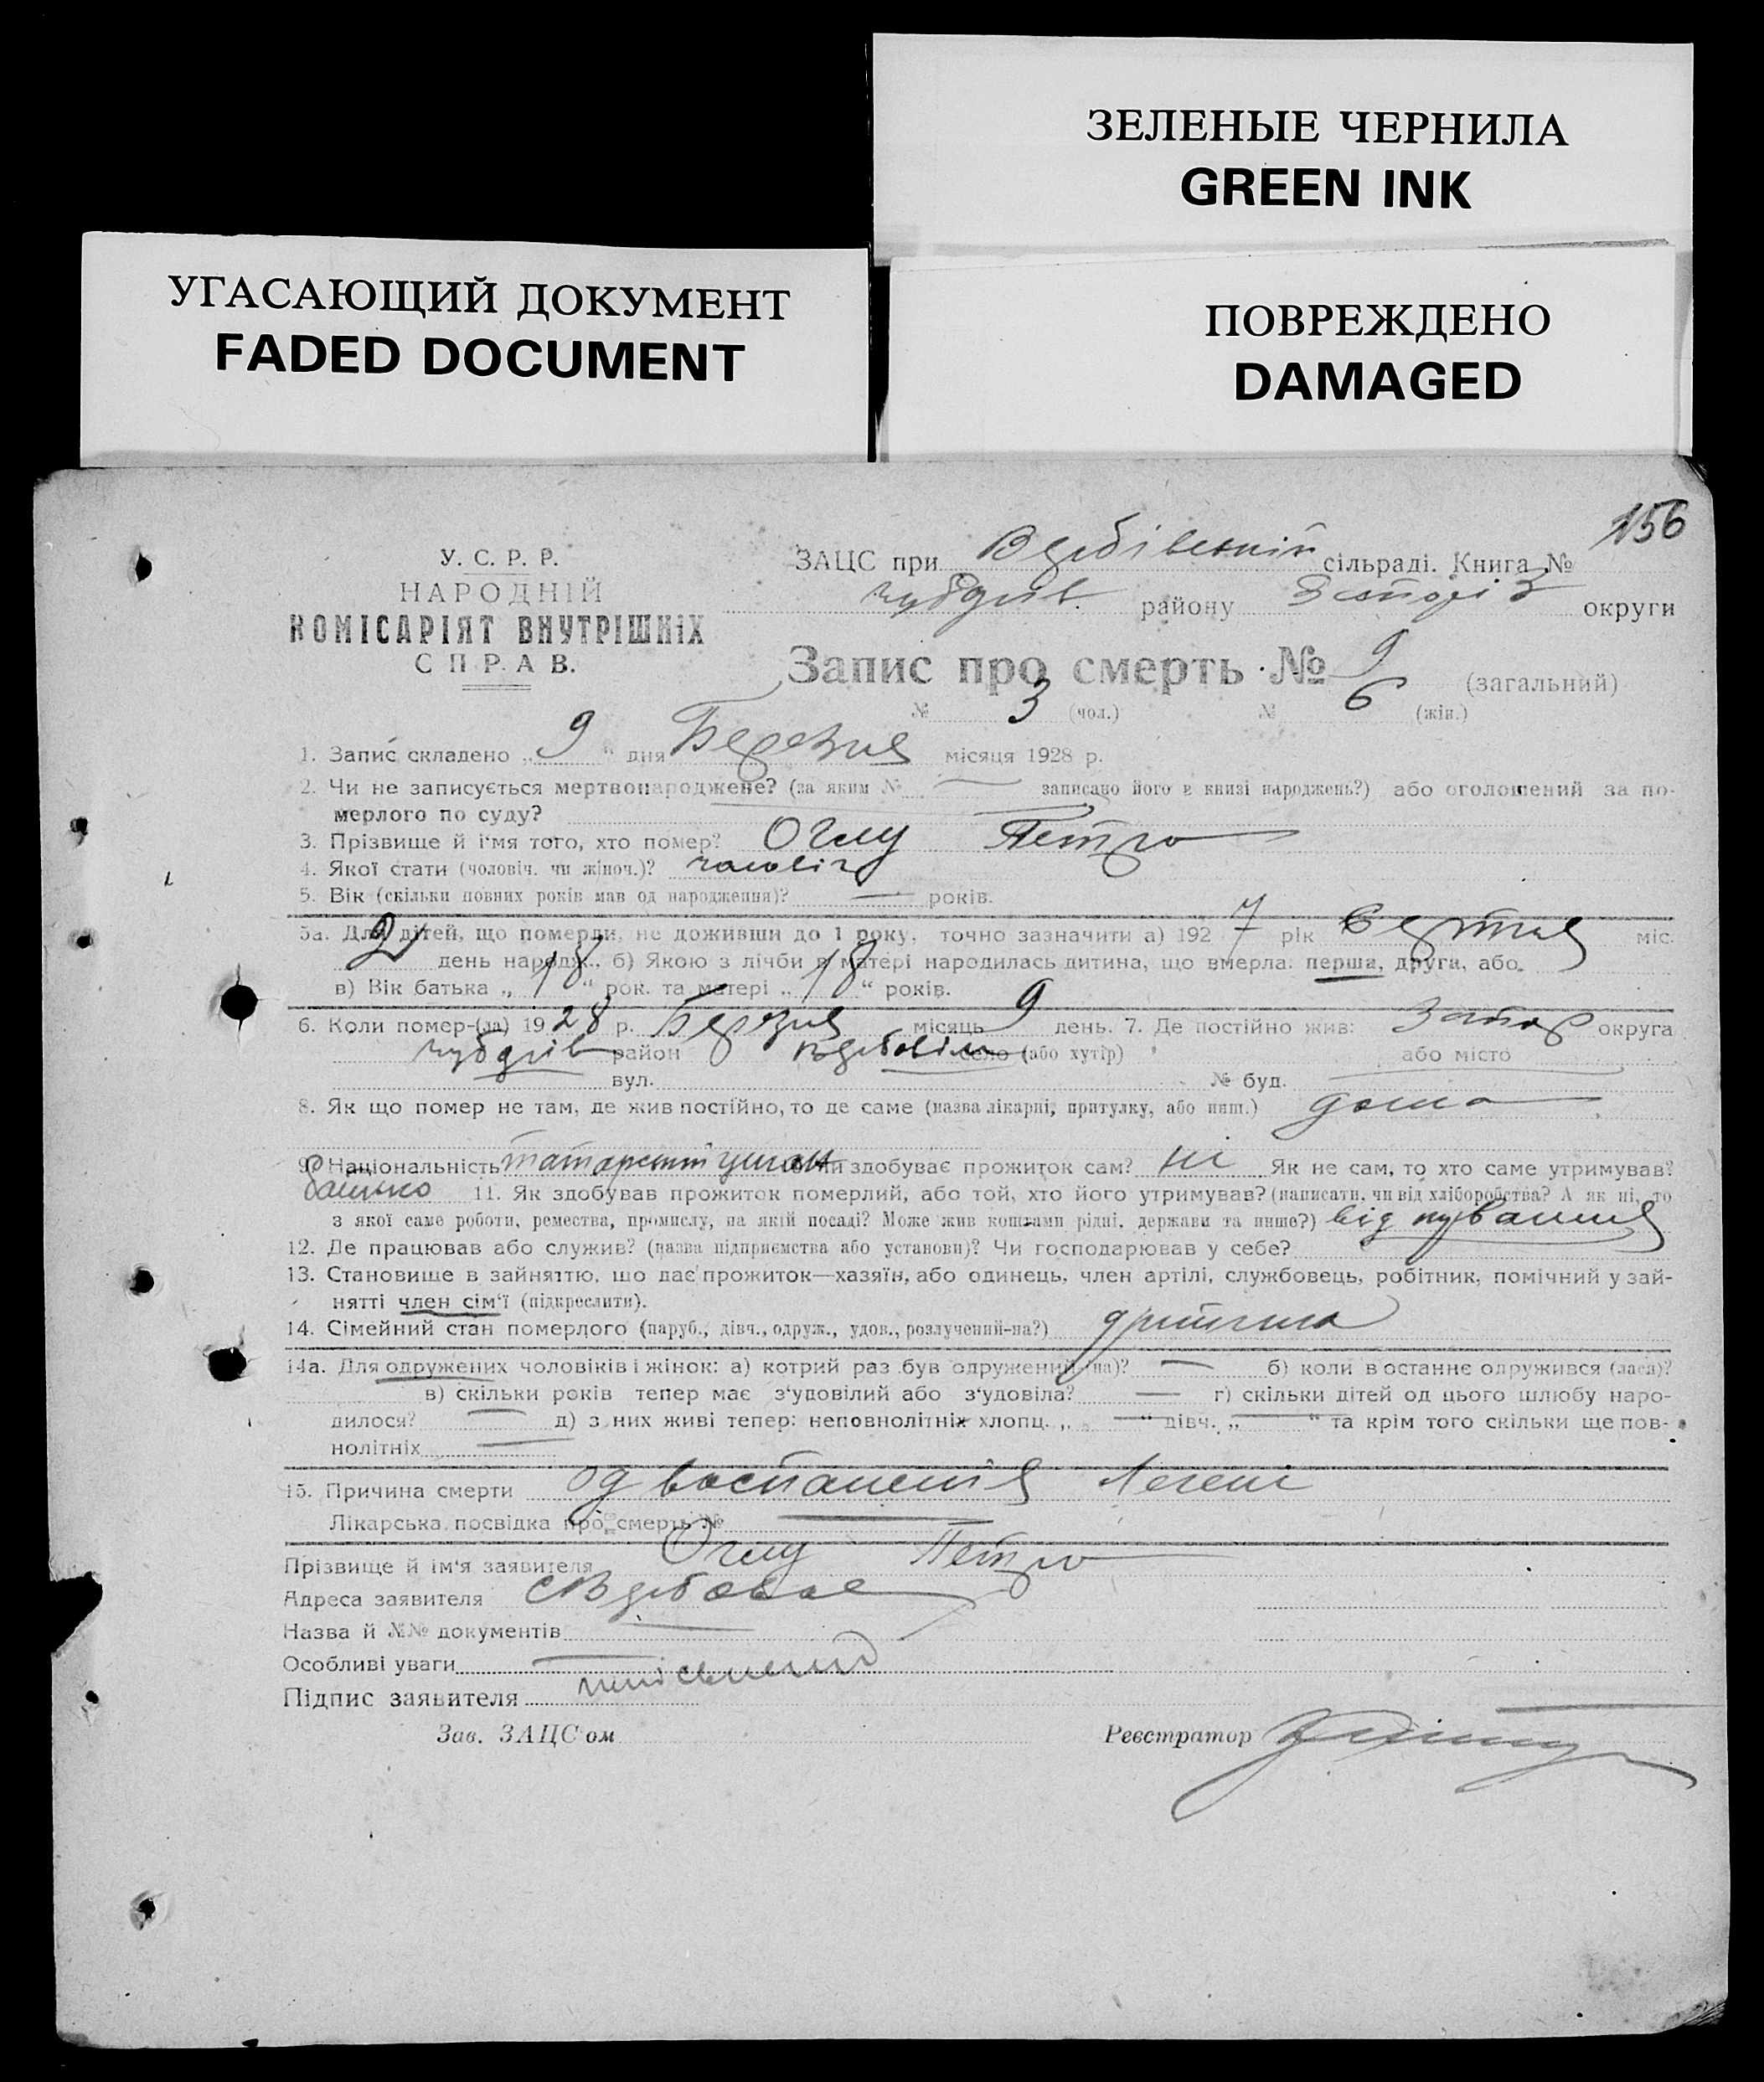 ЗЕЛЕНЫЕ ЧЕРНИЛА
GREEN INK
УГАСАЮЩИЙ ДОКУМЕНТ
FADED DOCUMENT
ПОВРЕЖДЕНО
DAMAGED
156
У. С. Р. Р.
НАРОДНІЙ
КОМІСАРІЯТ ВНУТРІШНІХ
СПРАВ.
ЗАЦС при Вербівській сільраді. Книга №
району округи
Запис про смерть № 9 (загальний)
№ 3 (чол.) № 6 (жін.)
1. Запис складено „ 9 “ дня Березня місяця 1928 р.
2. Чи не записується мертвонароджене? (за яким № — записано його в книзі народжень?) або оголошений за по-
мерлого по суду?
3. Прізвище й ім'я того, хто помер? Оглу Петро
4. Якої стати (чоловіч. чи жіноч.)? чоловіч
5. Вік (скільки повних років мав од народження)? — років.
5а. Для дітей, що померли, не доживши до 1 року, точно зазначити а) 1927 рік Серпня міс.
2 день народж., б) Якою з лічби в матері народилась дитина, що вмерла: перша, друга, або
в) Вік батька „ 18 “ рок. та матері „ 18 “ років.
6. Коли помер-(ла) 1928 р. Березня місяць 9 день. 7. Де постійно жив: Запор округа
район село (або хутір) або місто
вул. № буд.
8. Як що помер не там, де жив постійно, то де саме (назва лікарні, притулку, або инш.) дома
9. Національність татарський циган здобуває прожиток сам? ні Як не сам, то хто саме утримував?
батько 11. Як здобував прожиток померлий, або той, хто його утримував? (написати, чи від хліборобства? А як ні, то
з якої саме роботи, ремества, промислу, на якій посаді? Може жив коштами рідні, держави та инше?) від
12. Де працював або служив? (назва підприємства або установи)? Чи господарював у себе?
13. Становище в зайняттю, що дає прожиток—хазяїн, або одинець, член артілі, службовець, робітник, помічний у зай-
нятті член сім'ї (підкреслити).
14. Сімейний стан померлого (паруб., дівч., одруж., удов., розлучений-на?) дитина
14а. Для одружених чоловіків і жінок: а) котрий раз був одружений (на)? — б) коли востаннє одружився (лася)?
в) скільки років тепер має з'удовілий або з'удовіла? — г) скільки дітей од цього шлюбу наро-
дилося? — д) з них живі тепер: неповнолітніх хлопц. „ — “ дівч. „ — “ та крім того скільки ще пов-
нолітніх —
15. Причина смерти од воспаления легені
Лікарська посвідка про смерть № —
Прізвище й ім'я заявителя Оглу Петро
Адреса заявителя
Назва й №№ документів
Особливі уваги —
Підпис заявителя
Зав. ЗАЦС'ом Реєстратор